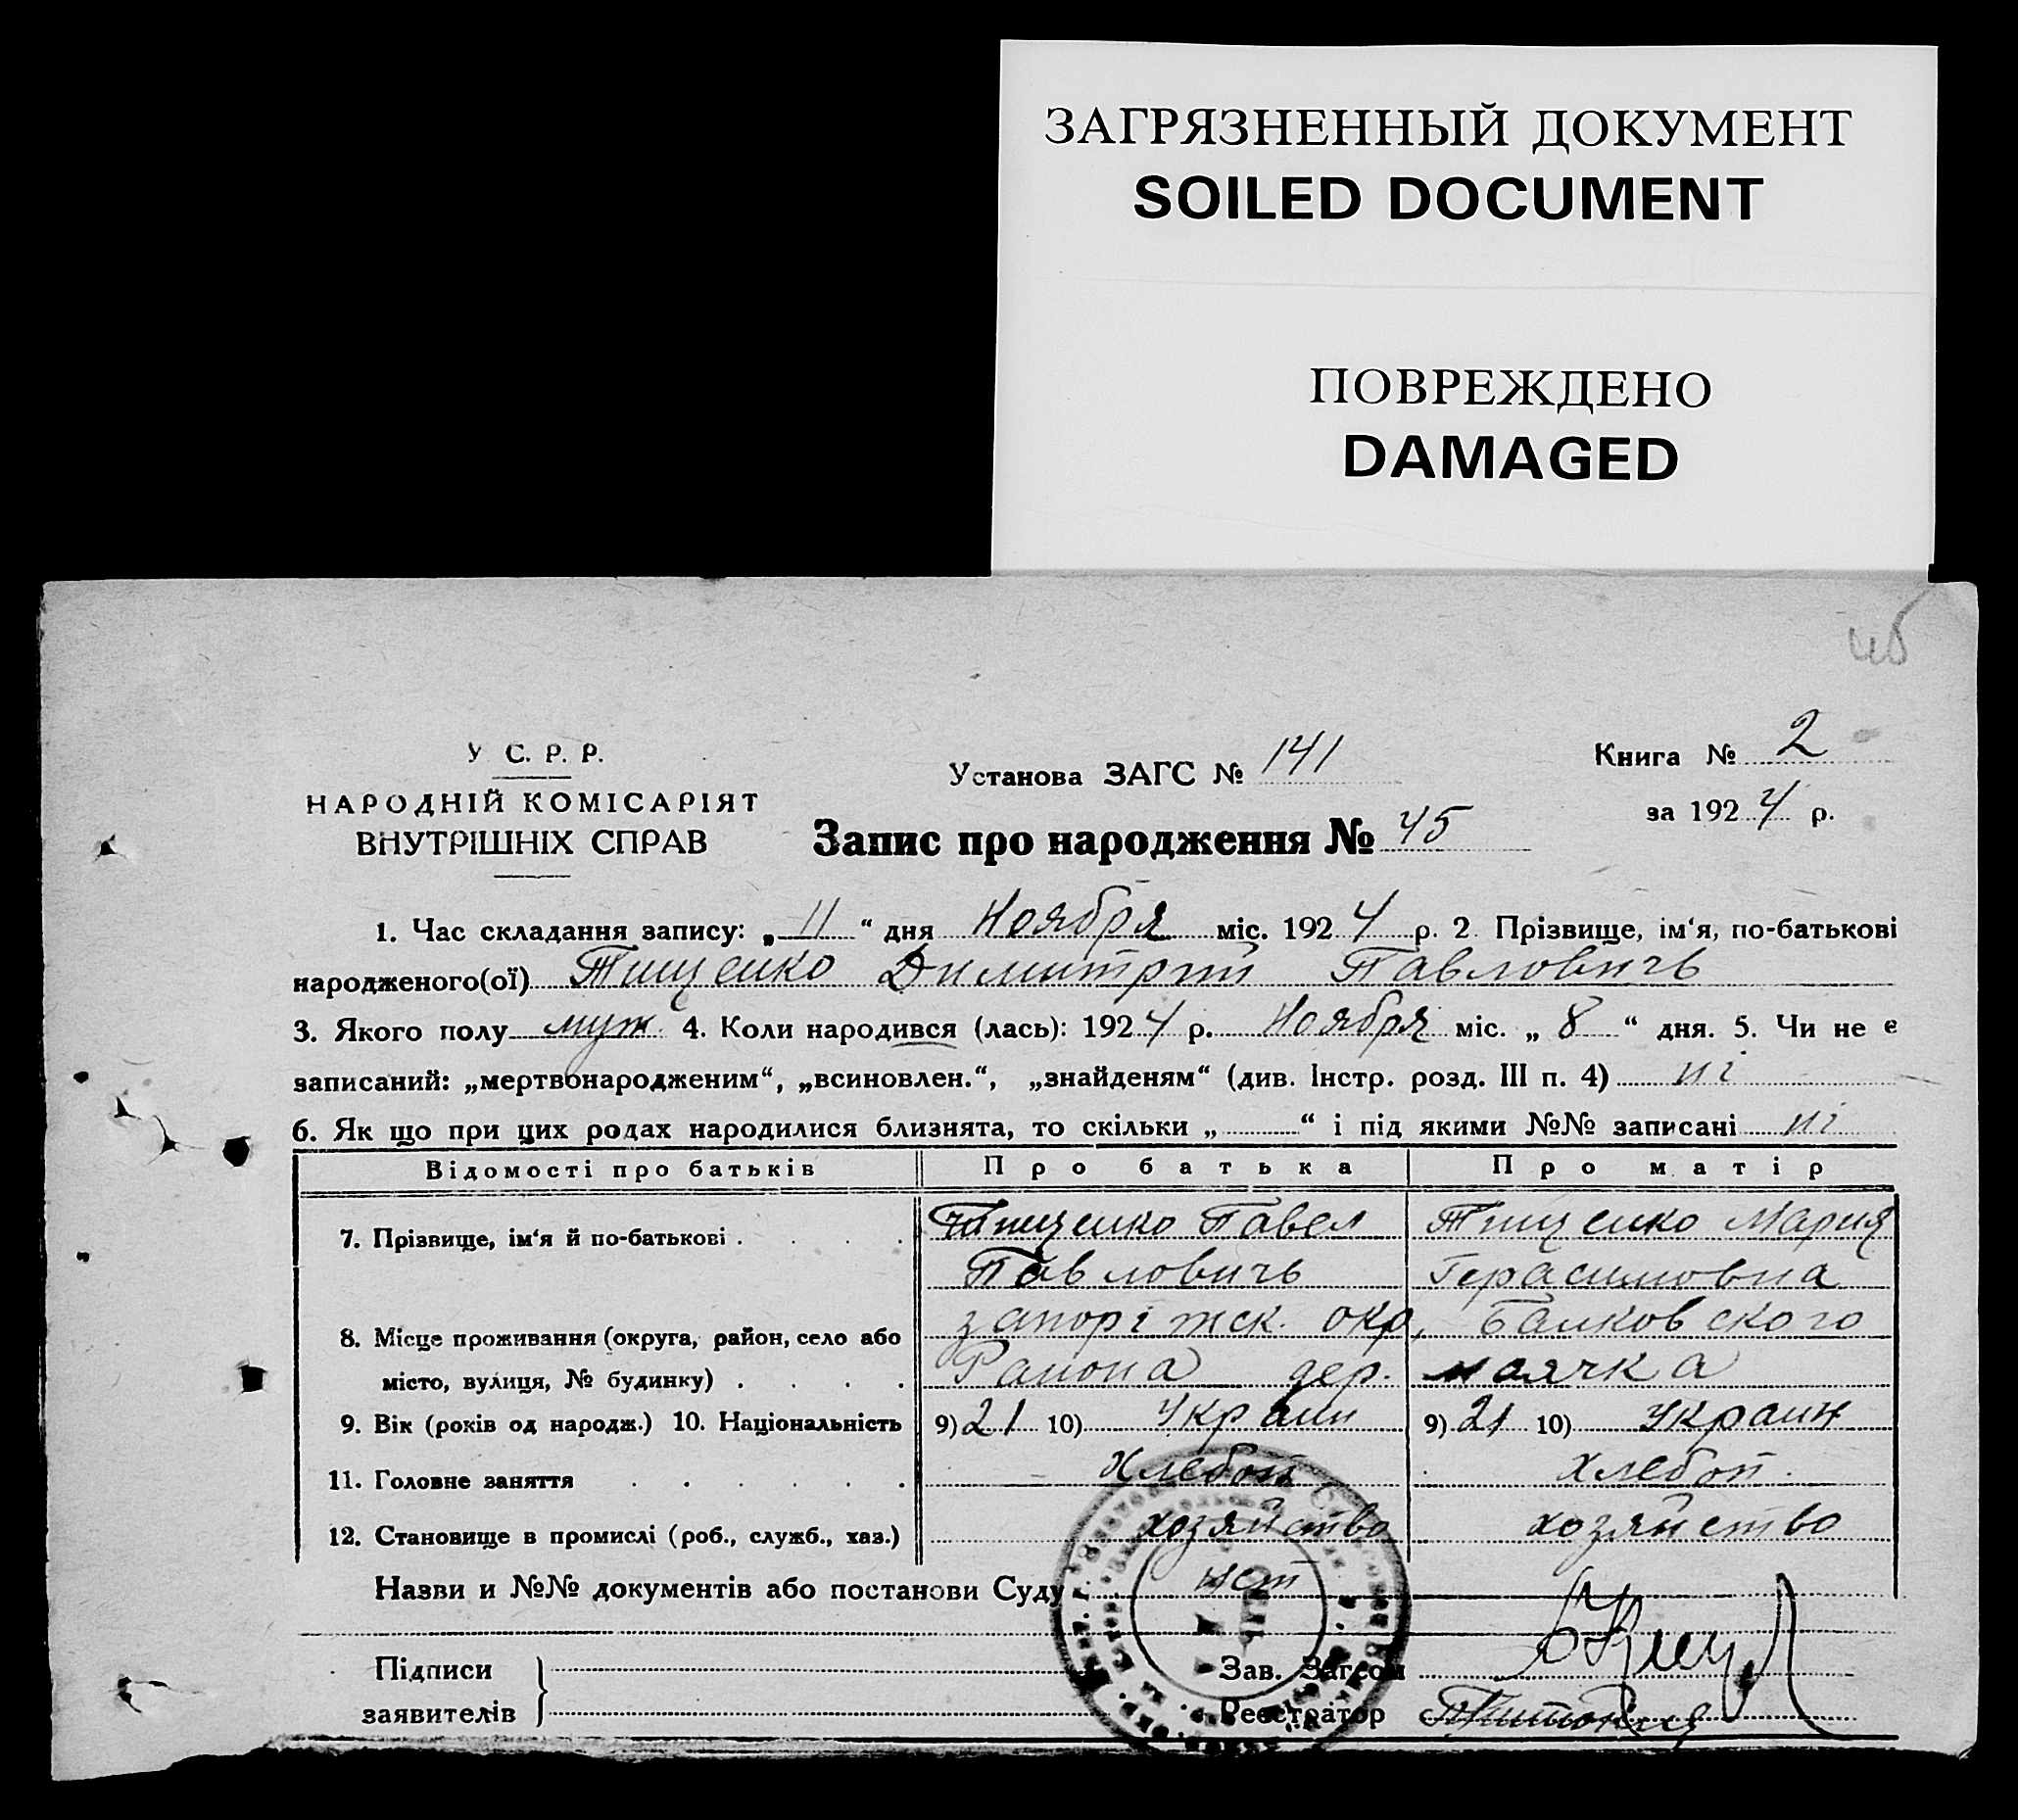 ЗАГРЯЗНЕННЫЙ ДОКУМЕНТ
SOILED DOCUMENT
ПОВРЕЖДЕНО
DAMAGED
У С. Р. Р.
НАРОДНІЙ КОМІСАРІЯТ
ВНУТРІШНІХ СПРАВ
Установа ЗАГС № 141
Книга № 2
за 1924 р.
Запис про народження № 45
1. Час складання запису: „ 11 “ дня Ноября міс. 1924 р. 2. Прізвище, ім‘я, по-батькові
народженого(ої) Тищенко Димитрий Павловичь
3. Якого полу муж. 4. Коли народився (лась): 1924 р. Ноября міс. „ 8 “ дня. 5. Чи не є
записаний: „мертвонародженим“, „всиновлен.“, „знайденям“ (див. Інстр. розд. III п. 4) ні
6. Як що при цих родах народилися близнята, то скільки „ “ і під якими №№ записані ні
Відомості про батьків Про батька Про матір
7. Прізвище, ім‘я й по-батькові . Тищенко Павел Тищенко Мария
Павловичь Герасимовна
8. Місце проживання (округа, район, село або запоріжск. окр, Балковского
місто, вулиця, № будинку) Района дер. маячка
9. Вік (років од народж.) 10. Національність 9) 21 10) Украин 9) 21 10) Украин
11. Головне заняття Хлебоп Хлебоп.
12. Становище в промислі (роб., служб., хаз.) хозяйство хозяйство
Назви и №№ документів або постанови Суду нет
Підписи
заявителів
Зав. Загсом
Реєстратор